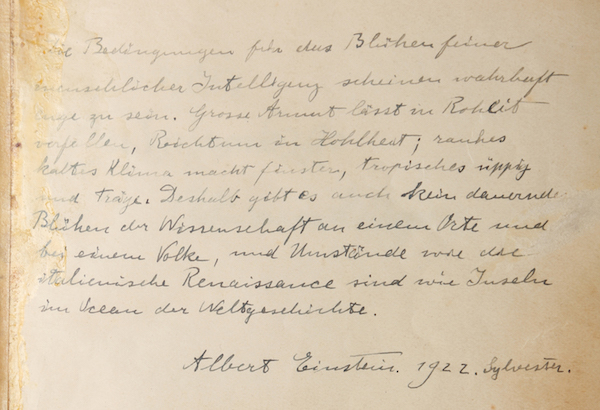 Die Bedingungen für das Blühen feiner
menschlicher Intelligenz scheinen wahrhaft
enge zu sein. Grosse Armut lässt in Rohheit
verfallen, Reichtum in Hohlheit; rauhes
kaltes Klima macht finster, tropisches üppig
und träge. Deshalb gibt es auch kein dauerndes
Blühen der Wissenschaft an einem Orte und
bei einem Volke, und Umstände wie die
italienische Renaissance sind wie Inseln
im Ocean der Weltgeschichte.
Albert Einstein. 1922. Sylvester.